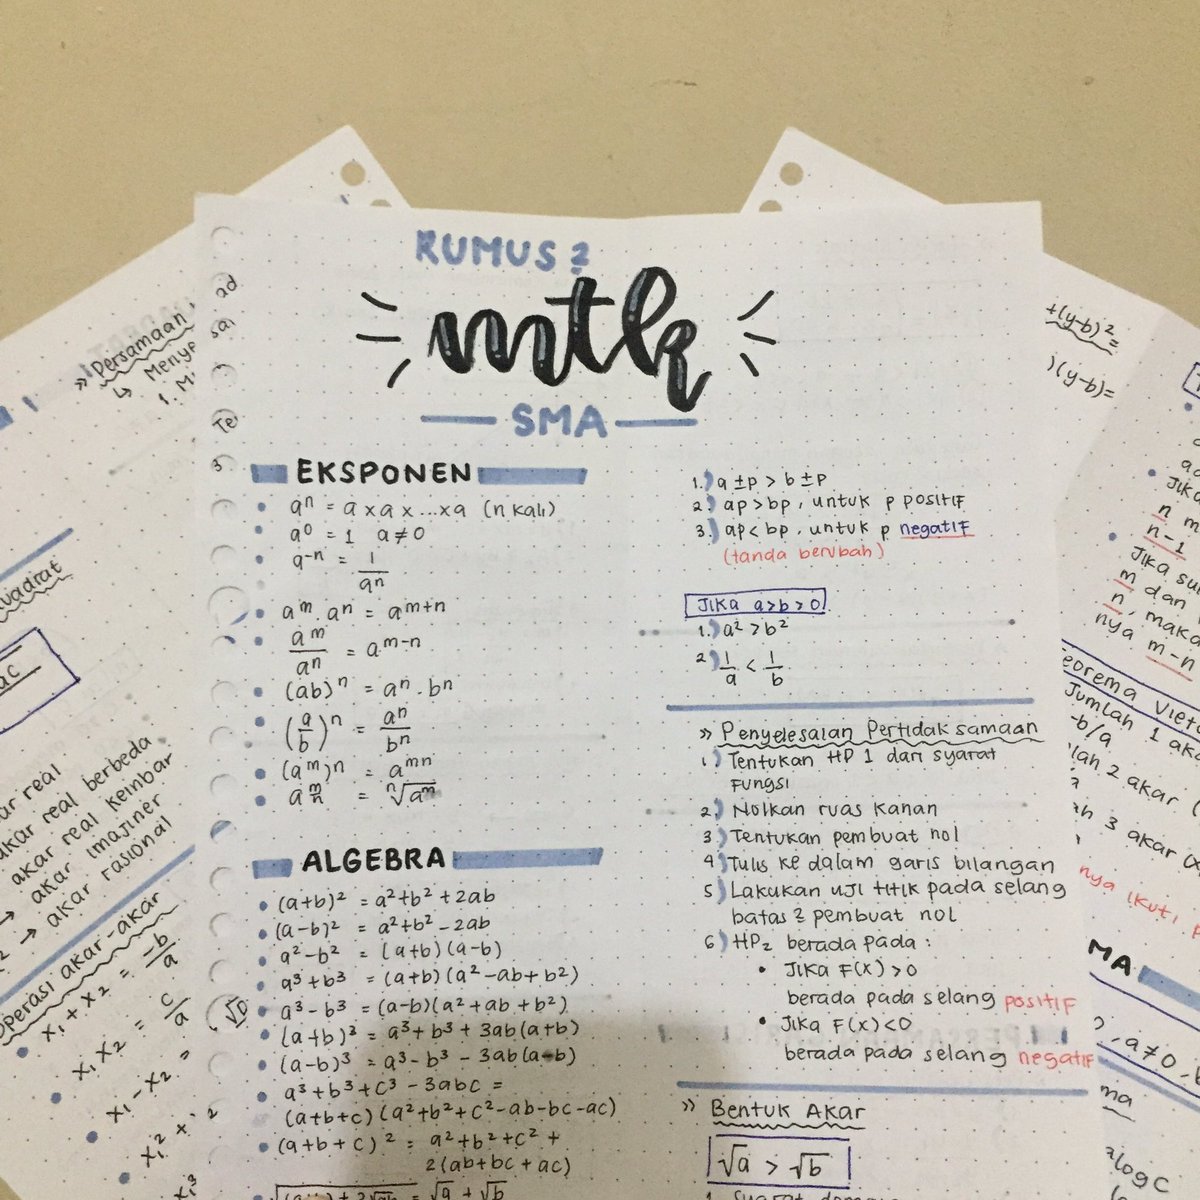 RUMUS2
mtk
SMA
EKSPONEN
aⁿ = a x a x ... x a (n kali)
a⁰ = 1 a ≠ 0
a⁻ⁿ = 1/aⁿ
aᵐ. aⁿ = aᵐ⁺ⁿ
aᵐ/aⁿ = aᵐ⁻ⁿ
(ab)ⁿ = aⁿ . bⁿ
(a/b)ⁿ = aⁿ/bⁿ
(aᵐ)ⁿ = aᵐⁿ
a^(m/n) = ⁿ√aᵐ
ALGEBRA
(a+b)² = a²+b² + 2ab
(a-b)² = a²+b² - 2ab
a²-b² = (a+b) (a-b)
a³+b³ = (a+b) (a²-ab+b²)
a³-b³ = (a-b)(a²+ab+b²)
(a+b)³ = a³+b³+3ab(a+b)
(a-b)³ = a³-b³ - 3ab(a-b)
a³+b³+c³ - 3abc =
(a+b+c) (a²+b²+c²-ab-bc-ac)
(a+b+c)² = a²+b²+c² +
2(ab+bc+ac)
= √a + √b
1.) a ±p > b ±p
2.) ap>bp, untuk p positif
3.) ap<bp, untuk p negatif
(tanda berubah)
Jika a>b>0
1.) a²>b²
2.) 1/a < 1/b
» Penyelesaian Pertidaksamaan
1) Tentukan HP 1 dari syarat
fungsi
2) Nolkan ruas kanan
3) Tentukan pembuat nol
4) Tulis ke dalam garis bilangan
5) Lakukan uji titik pada selang
batas2 pembuat nol
6) HP₂ berada pada :
• Jika F(x)>0
berada pada selang positif
• Jika F(x)<0
berada pada selang negatif
» Bentuk Akar
√a > √b
» Persamaan
↳ Menye
1. M
ad
sai
Te
3
uadrat
ac
ar real
akar real berbeda
akar real kembar
→ akar imajiner
→ akar rasional
operasi akar-akar
x₁ + x₂ = -b/a
x₁ x₂ = c/a
x₁ - x₂ =
√D
x₁² +
x₁³
+(y-b)²=
)(y-b)=
Jika
n
n-1
Jika su
m dan
n, maka
nya m-n
eorema Vieta
Jumlah 1 aka
-b/a
lah 2 akar (
ah 3 akar (x
nya ikuti p
MA
, a≠0,
ma
²log c